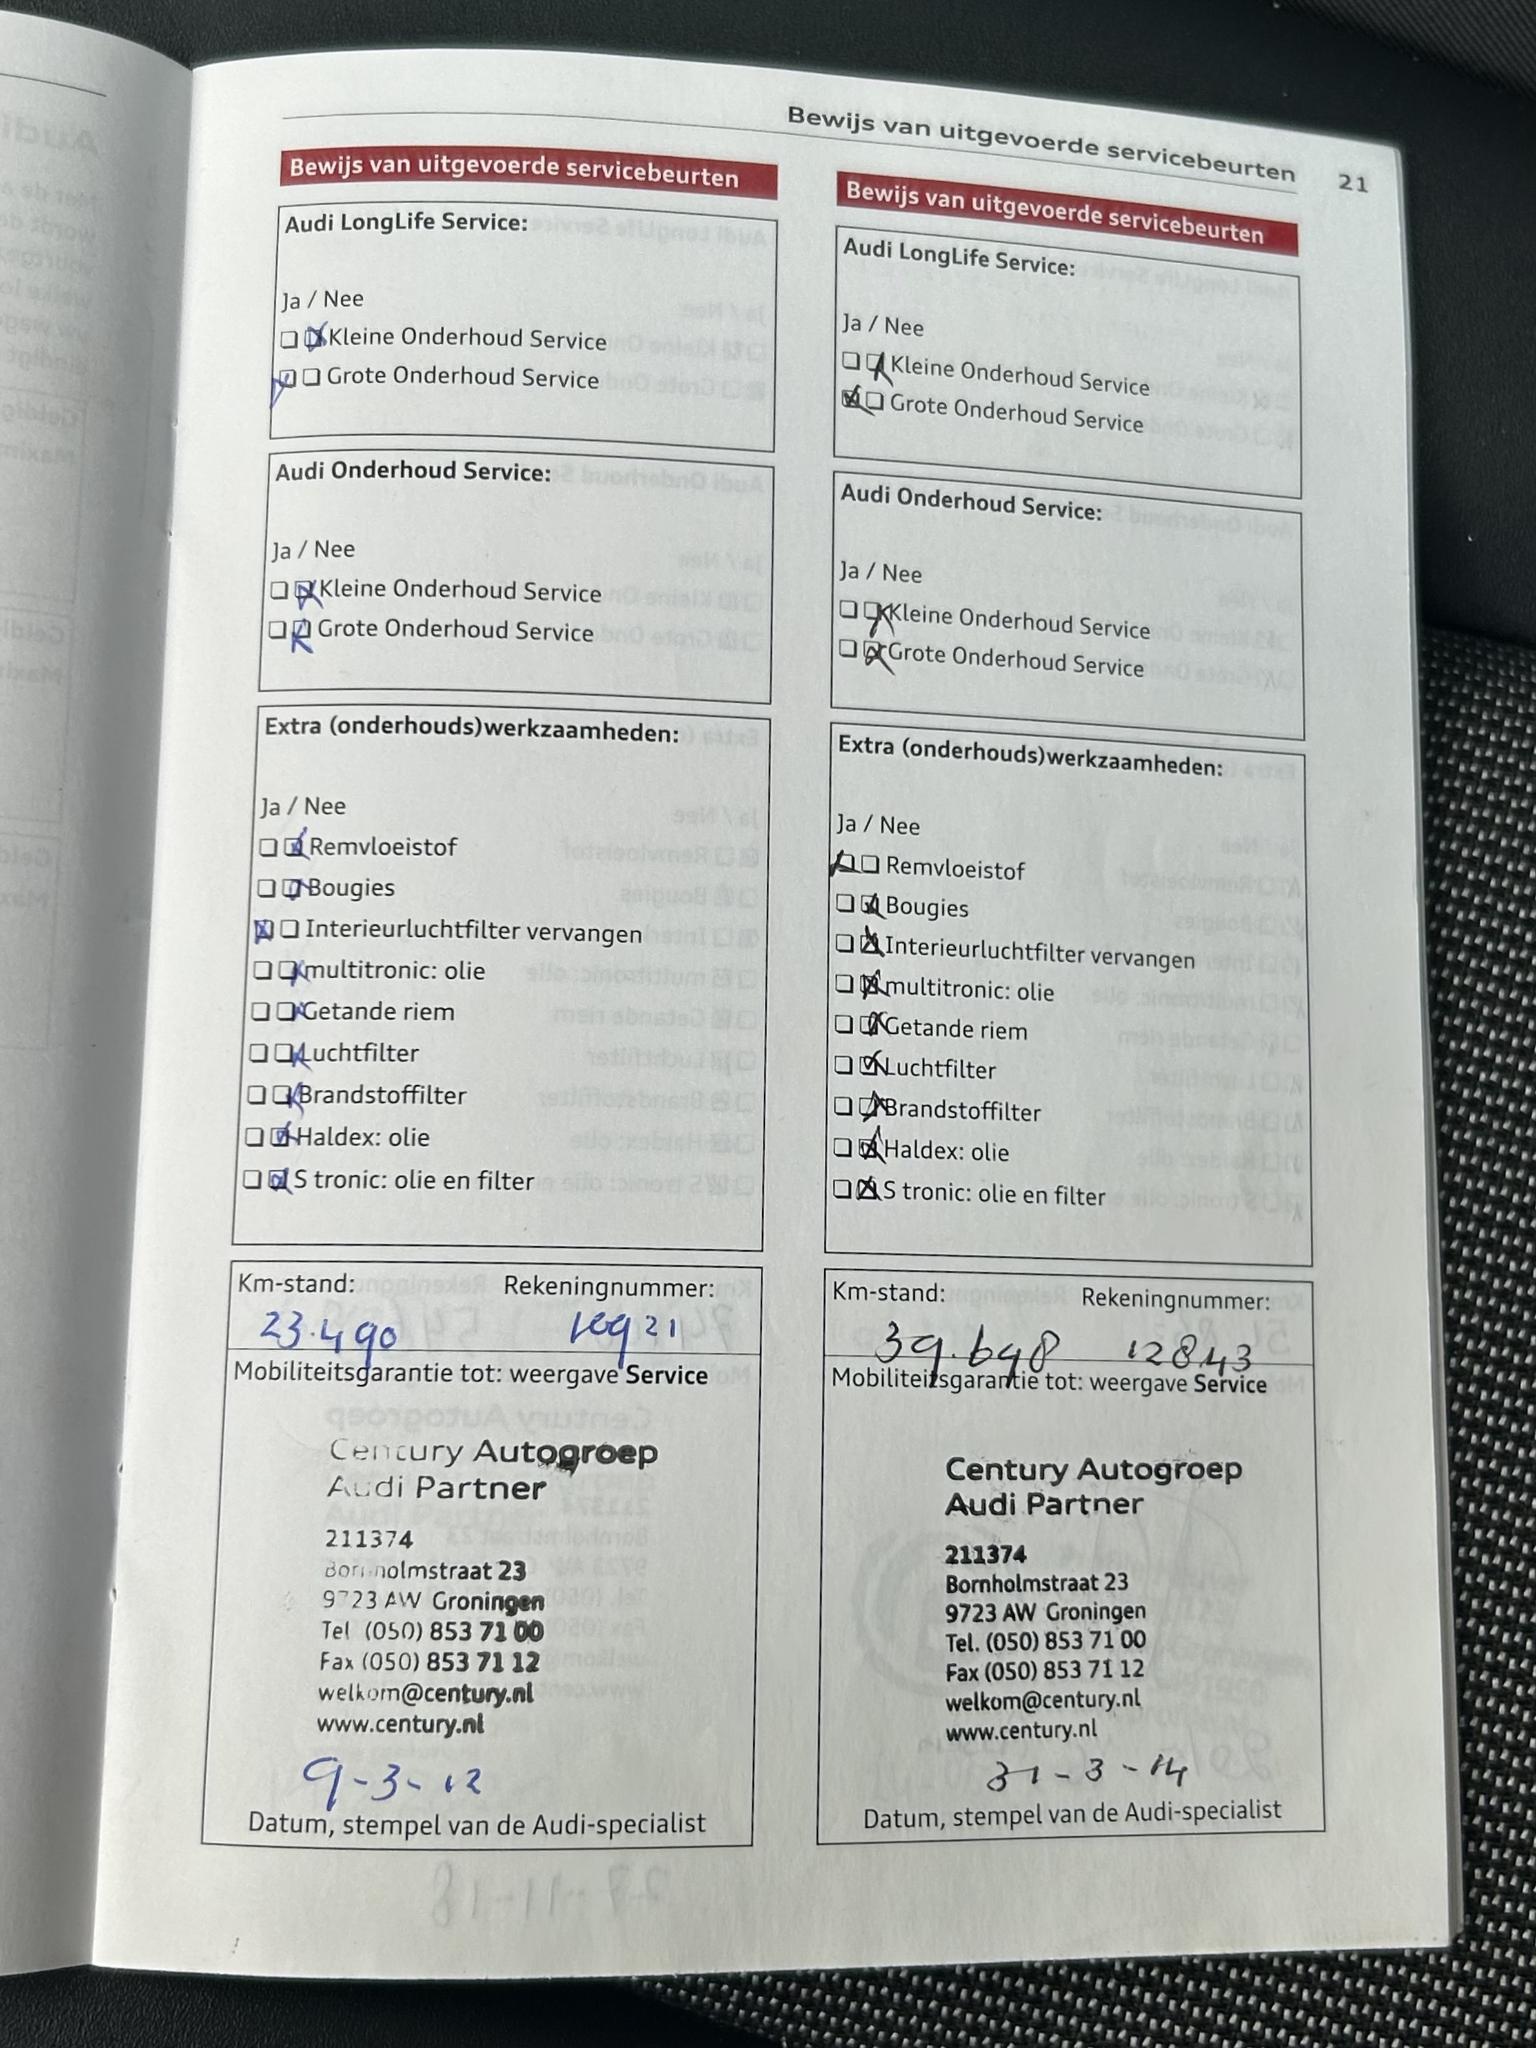 Bewijs van uitgevoerde servicebeurten 21
Bewijs van uitgevoerde servicebeurten
Audi LongLife Service:
Ja / Nee
Kleine Onderhoud Service
Grote Onderhoud Service
Audi Onderhoud Service:
Ja / Nee
Kleine Onderhoud Service
Grote Onderhoud Service
Extra (onderhouds)werkzaamheden:
Ja / Nee
Remvloeistof
Bougies
Interieurluchtfilter vervangen
multitronic: olie
Getande riem
Luchtfilter
Brandstoffilter
Haldex: olie
S tronic: olie en filter
Km-stand: Rekeningnummer:
23.490 10921
Mobiliteitsgarantie tot: weergave Service
Century Autogroep
Audi Partner
211374
Bornholmstraat 23
9723 AW Groningen
Tel (050) 853 71 00
Fax (050) 853 71 12
welkom@century.nl
www.century.nl
9-3-12
Datum, stempel van de Audi-specialist
Bewijs van uitgevoerde servicebeurten
Audi LongLife Service:
Ja / Nee
Kleine Onderhoud Service
Grote Onderhoud Service
Audi Onderhoud Service:
Ja / Nee
Kleine Onderhoud Service
Grote Onderhoud Service
Extra (onderhouds)werkzaamheden:
Ja / Nee
Remvloeistof
Bougies
Interieurluchtfilter vervangen
multitronic: olie
Getande riem
Luchtfilter
Brandstoffilter
Haldex: olie
S tronic: olie en filter
Km-stand: Rekeningnummer:
39.698 12843
Mobiliteitsgarantie tot: weergave Service
Century Autogroep
Audi Partner
211374
Bornholmstraat 23
9723 AW Groningen
Tel. (050) 853 71 00
Fax (050) 853 71 12
welkom@century.nl
www.century.nl
31-3-14
Datum, stempel van de Audi-specialist